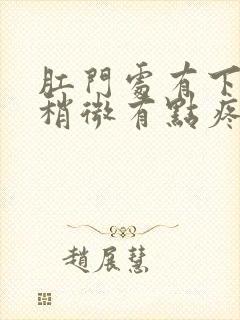 肛門處有下
稍微有點疼
趙展慧